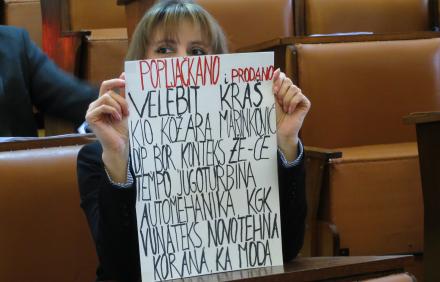 POPLJAČKANO i PRODANO
VELEBIT KRAŠ
KIO KOŽARA MARINKOVIĆ
DP BIR KONTEKS ŽE-ČE
TEMPO JUGOTURBINA
AUTOMEHANIKA KGK
VUNATEKS NOVOTEHNA
KORANA KA MODA